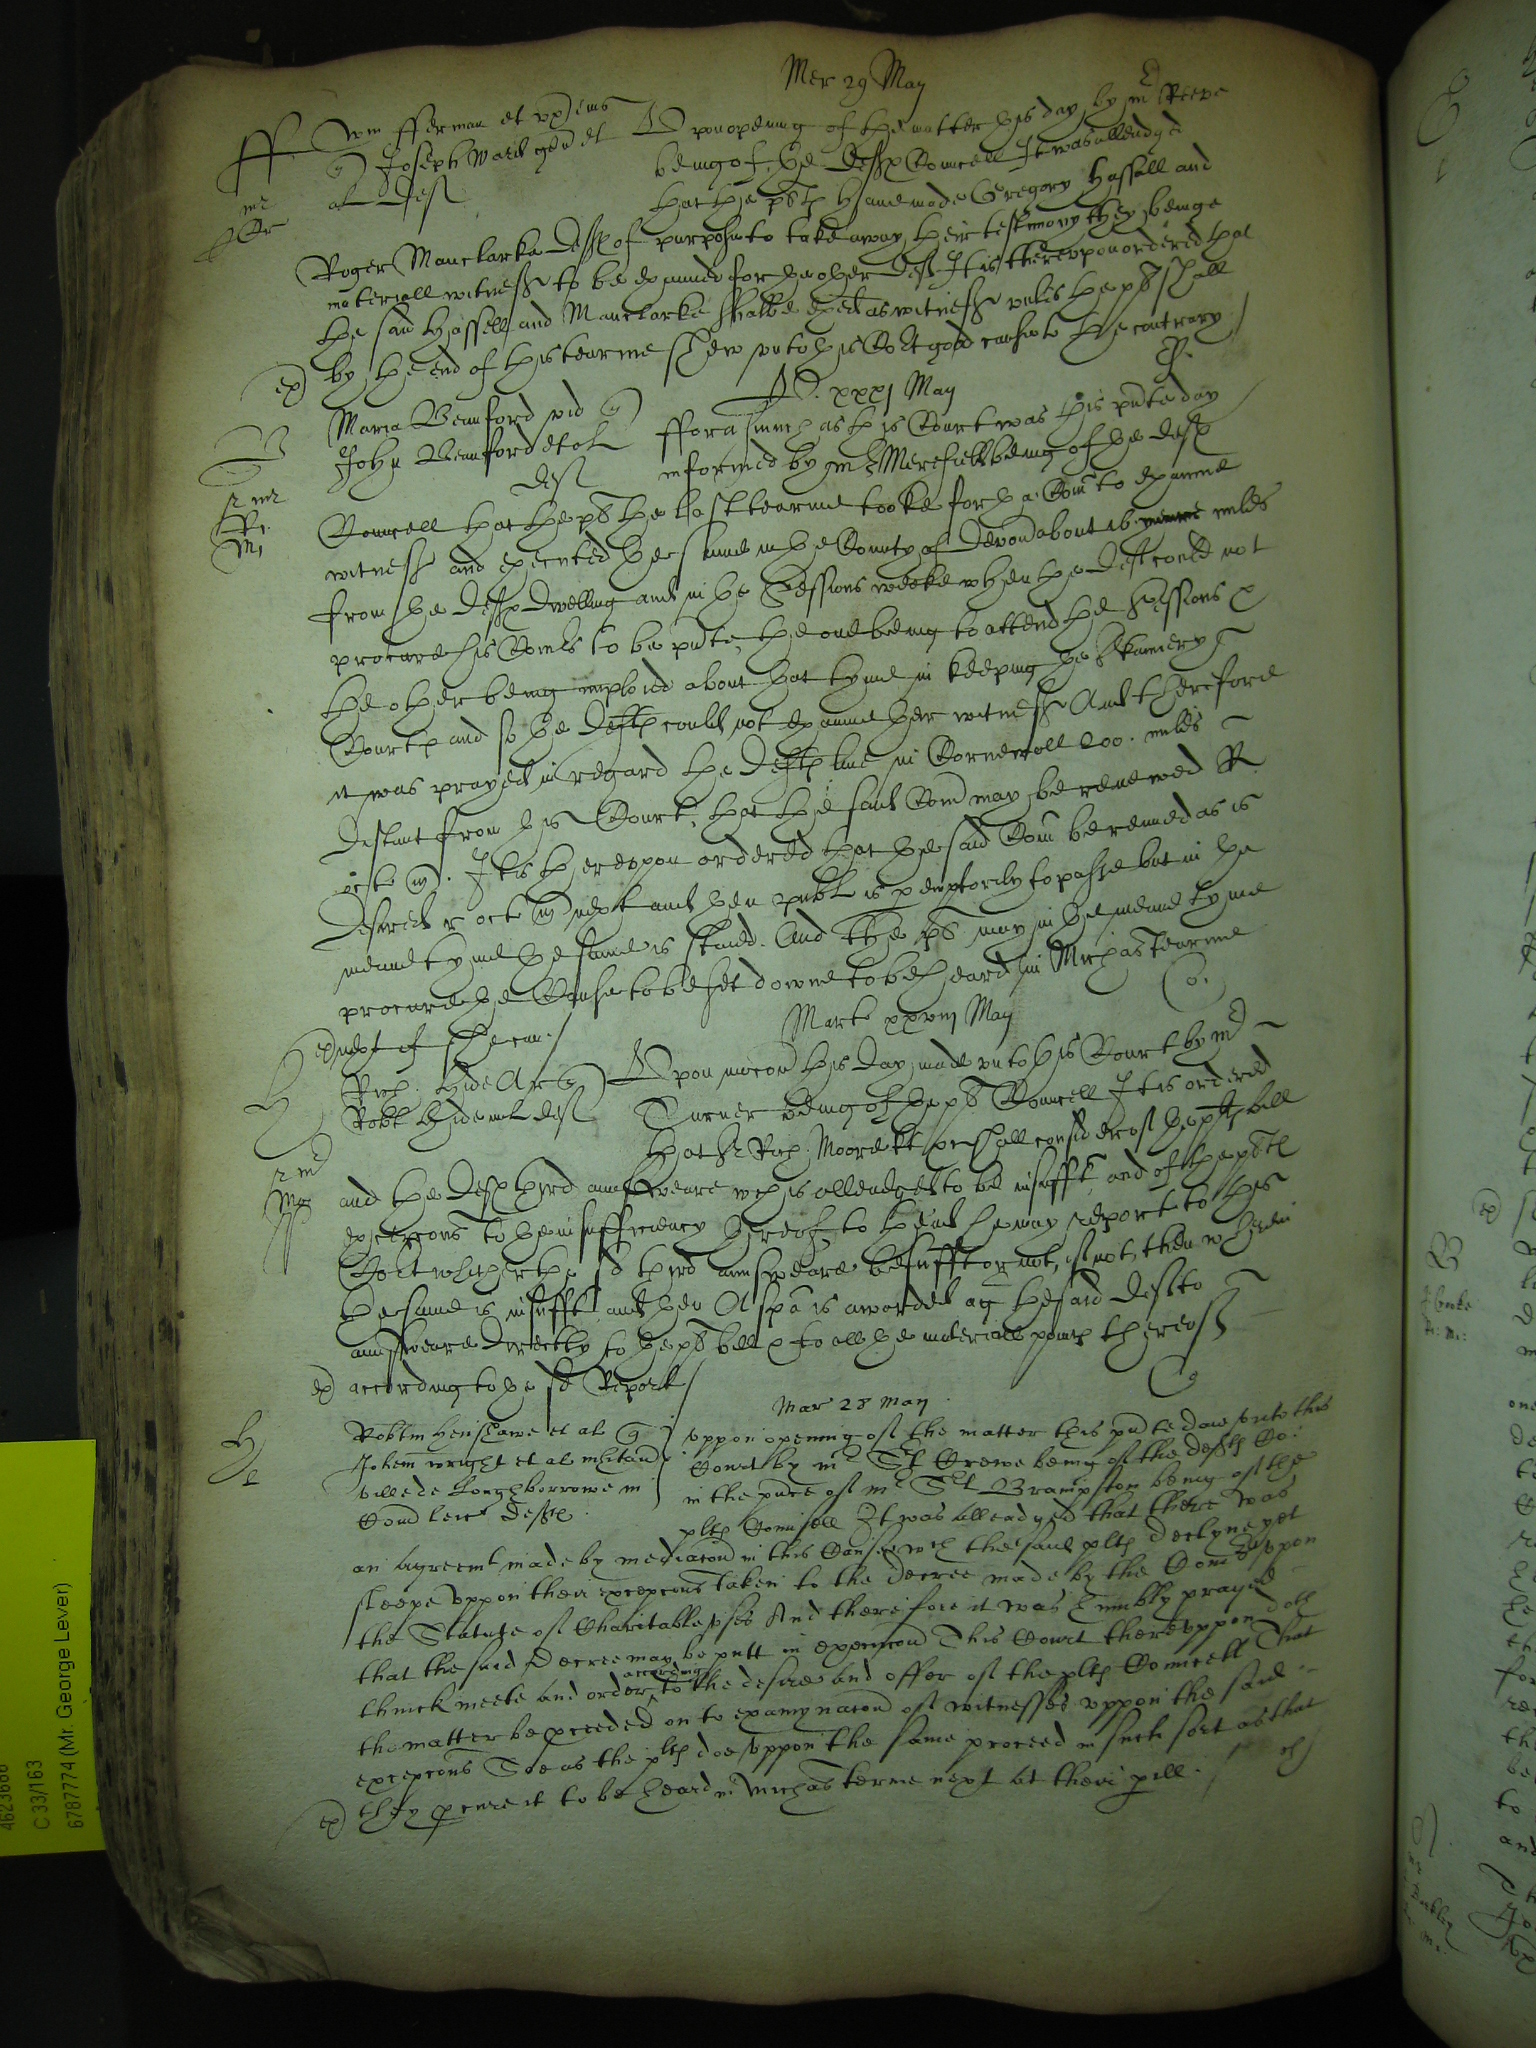 Mer 29 May
Wm fferman et vx quer
Joseph Ward gen et
al Def
Vpon opening of the matter this day by mr Reeve
being of the Defts Councell It was alleadged
that the plts have made Gregory Hassall and
Roger Manclarke defts of purpose to take away their testimony they beinge
materiall witnesses to be exãmined for the other Defts It is therevpon ordered that
the said Hassell and Manclarke shalbe exed as witnesses vnles the plts shall
by the end of this tearme shew vnto this Cort good cause to the contrary
ex
xxxj May
Maria Beauford vid
John Beauford et al
def
fforasmuch as this Court was this pnte day
informed by mr Merefield being of the defts
Councell that the plt the last tearme tooke forth a Com to examine
witnesses and executed the same in the County of Devon about 16 miles
from the defts dwelling and in the Sessions weeke when the Deft could not
procure his Comrs to be pnte, the one being to attend the Sessions &
the other being imploied about that tyme in keeping the Stannery
Courts and so the Defts could not examine their witnesses And therefore
it was prayed in regard the Defts live in Cornewall 200 miles
distant from this Court, that the said Com may be renewed R
octo m. It is therevpon ordered that the said Com be renued as is
desired r octo m next and then publ is peremptorily to passe but in the
meane tyme the same is staied. And the plt may in the meane tyme
procure the Cause to be set downe to be heard in Michas Tearme
ex next if he can
Marte xxviij May
Rich Hide Ar
Robt Hide mil def
Vpon mocon this day made vnto this Court by mr
Turner being of the plts Councell It is ordered
that Sr Rich Moore kt shall consider of the plts bill
and the defts third aunsweare wch is alleadged to be insufft and of the plts
excepcons to the insufficiency thereof, to thend he may report to this
Cort whether the sd third aunsweare be sufft or not, if not, then wherein
the same is insufft and then A spa is awarded ag the said Deft to
aunsweare directly to the plts bill & to all the materiall points thereof
ex according to the sd Report
Mar 28 May
Robtm Henshawe et al
Johem wright et al inhitand
ville de Loughborrowe in
Com Leic defts
vppon opening of the matter this pnte daie vnto this
Court by mr Sct Crewe being of the defts Co:
in the pnce of mr Sct Brampston being of the
plts Counsell It was alleadged that there was
an agreemt made by mediacon in this Cause wch the said plts declyne yet
sleepe vppon their excepcons taken to the decree made by the Comrs vpon
the Statute of Charitable vses And therefore it was humbly prayed
that the said decree may be putt in execucon This Court therevppon doth
thinck meete and order according to the desire and offer of the plts Councell That
the matter be pceeded on to examynacon of witnesses vppon the said
excepcons Soe as the plts doe vppon the same proceed in such sort as that
ex they pcure it to be heard in Michas terme next at their pill.
C 33/163
6787774 (Mr. George Lever)